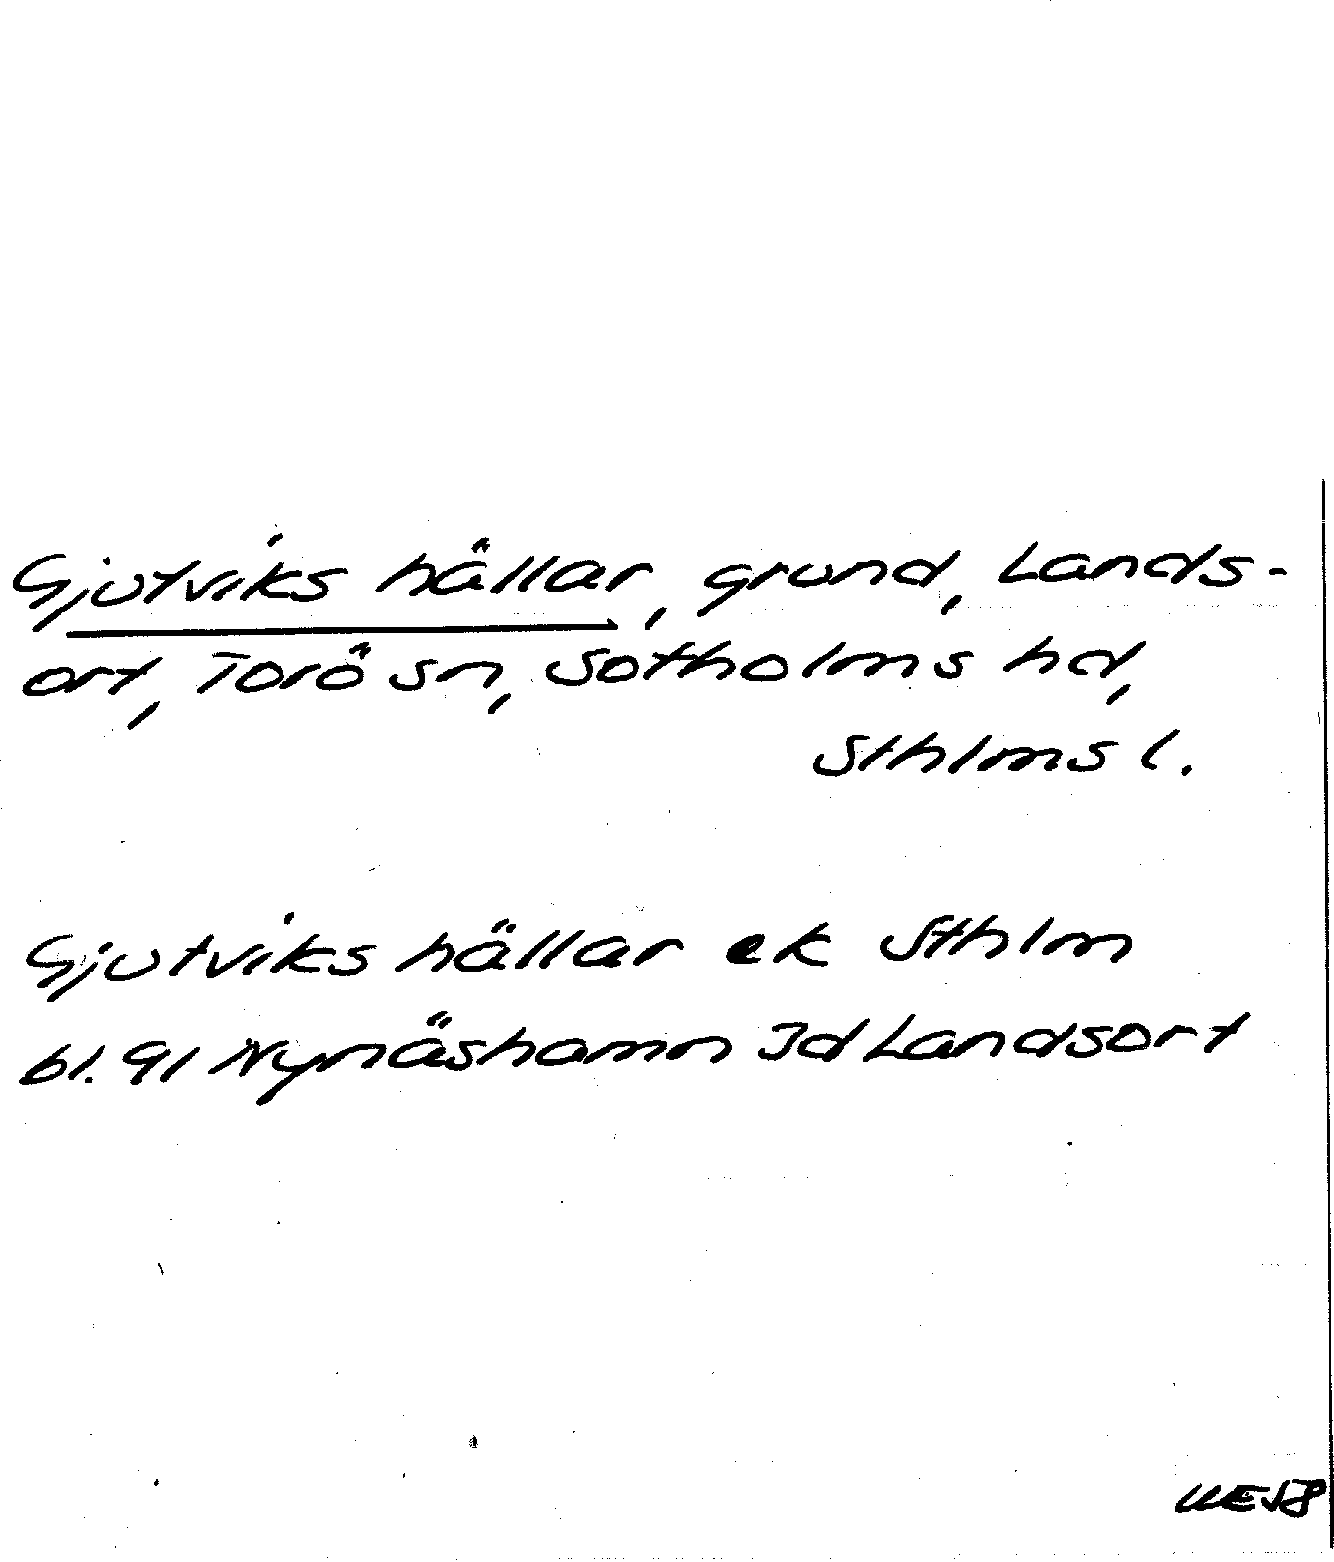 Gjutviks hällar, grund, Lands-
ort, Torö sn, Sotholms hd,
Sthlms l.
Gjutviks hällar ek Sthlm
bl. 91 Nynäshamn Jd Landsort